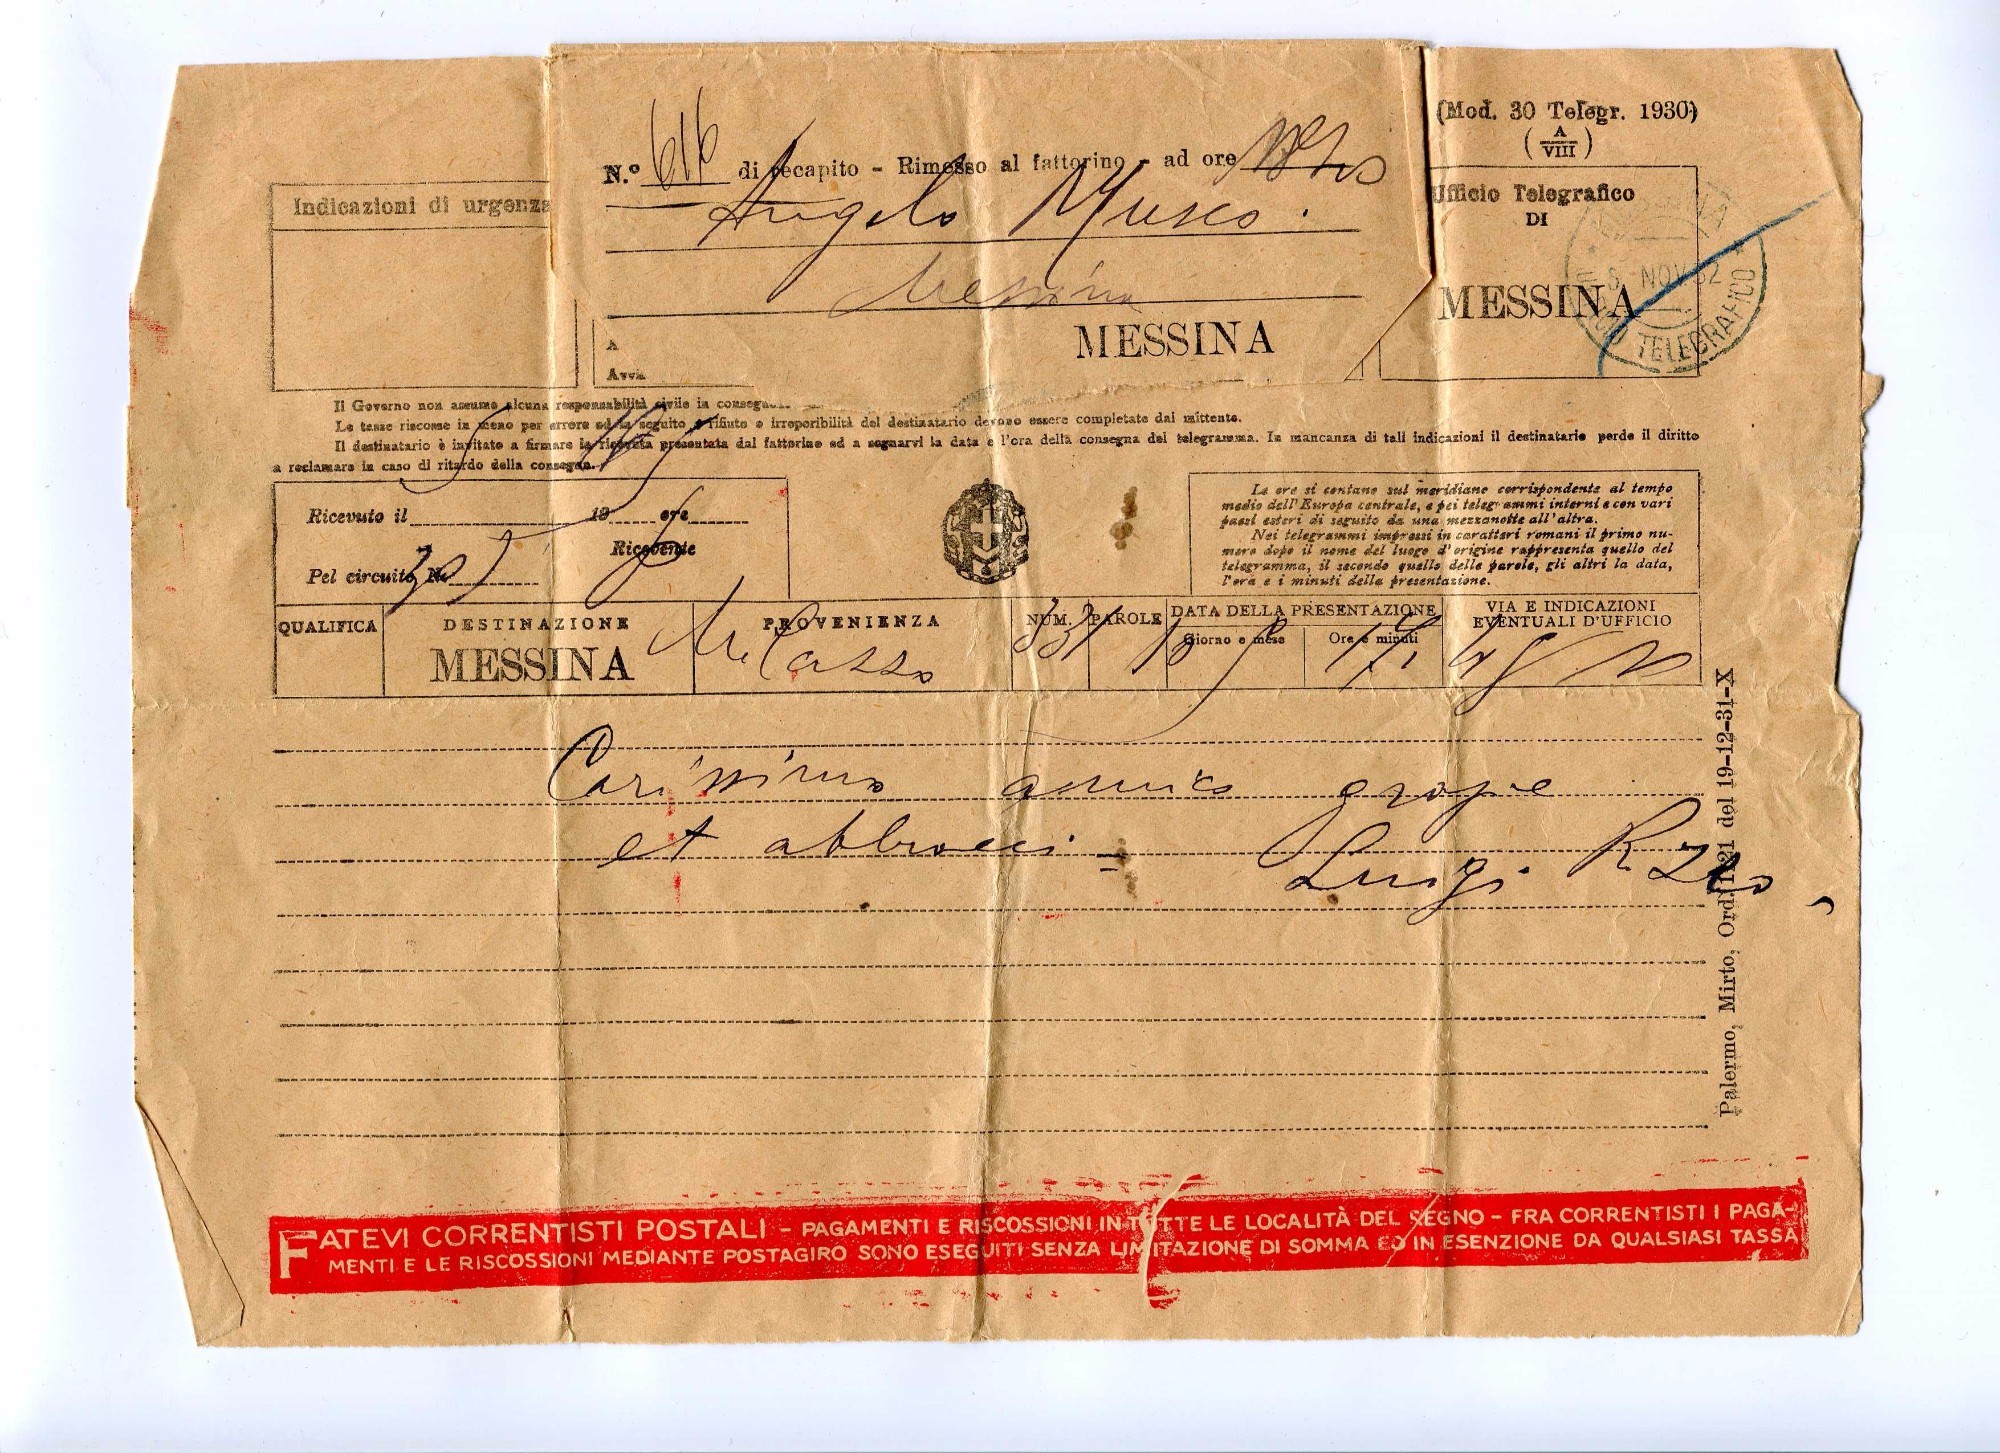 (Mod. 30 Telegr. 1930)
(A/VIII)
N.º 616 di recapito - Rimesso al fattorino - ad ore
Angelo Musco.
Messina
MESSINA
Indicazioni di urgenza
Ufficio Telegrafico
DI
MESSINA
NOV 32
UFFICIO TELEGRAFICO
Il Governo non assume alcuna responsabilità civile in conseg
Le tasse riscosse in meno per errore od in seguito a rifiuto o irreperibilità del destinatario devono essere completate dal mittente.
Il destinatario è invitato a firmare la ricevuta presentata dal fattorino ed a segnarvi la data e l'ora della consegna del telegramma. In mancanza di tali indicazioni il destinatario perde il diritto
a reclamare in caso di ritardo della consegna.
Ricevuto il 19 ore
Ricevente
Pel circuito N.
Le ore si contano sul meridiano corrispondente al tempo
medio dell'Europa centrale, e pei telegrammi interni e con vari
paesi esteri di seguito da una mezzanotte all'altra.
Nei telegrammi impressi in caratteri romani il primo nu-
mero dopo il nome del luogo d'origine rappresenta quello del
telegramma, il secondo quello delle parole, gli altri la data,
l'ora e i minuti della presentazione.
QUALIFICA DESTINAZIONE PROVENIENZA NUM. PAROLE DATA DELLA PRESENTAZIONE VIA E INDICAZIONI EVENTUALI D'UFFICIO
Giorno e mese Ore e minuti
MESSINA Milazzo
Carissimo amico grazie
et abbracci = Luigi Rizzo
Palermo, Mirto, Ord. 1121 del 19-12-31-X
FATEVI CORRENTISTI POSTALI - PAGAMENTI E RISCOSSIONI IN TUTTE LE LOCALITÀ DEL REGNO - FRA CORRENTISTI I PAGA-
MENTI E LE RISCOSSIONI MEDIANTE POSTAGIRO SONO ESEGUITI SENZA LIMITAZIONE DI SOMMA ED IN ESENZIONE DA QUALSIASI TASSA